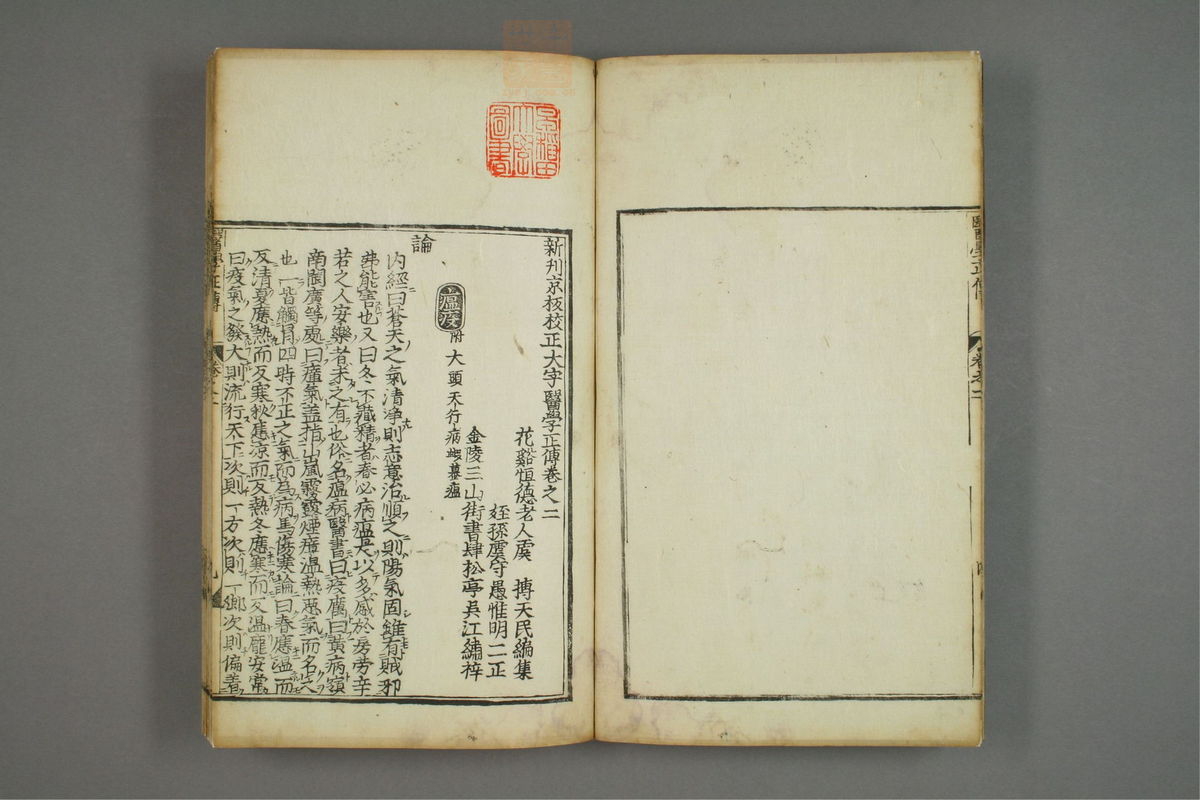 醫學正傳 卷之二
新刋京板校正大字醫學正傳卷之二
花谿恒德老人虞 摶天民編集
姪孫虞守愚惟明二正
金陵三山街書肆松亭吳江繡梓
瘟疫 附大頭天行病 蝦蟇瘟
論
內經曰蒼天之氣清淨則志意治順之則陽氣固雖有賊邪
弗能害也又曰冬不藏精者春必病瘟是以多感於房勞辛
若之人安樂者未之有也俗名瘟病醫書曰疫癘曰黃病嶺
南閩廣等處曰瘴氣盖指山嵐霧露煙瘴温熱惡氣而名之
也一皆觸冒四時不正之氣而為病焉傷寒論曰春應温而
反清夏應熱而反寒秋應凉而反熱冬應寒而反温龎安常
曰疫氣之發大則流行天下次則一方次則一鄉次則偏着
醫學正傳 卷之二
早稲田大學圖書